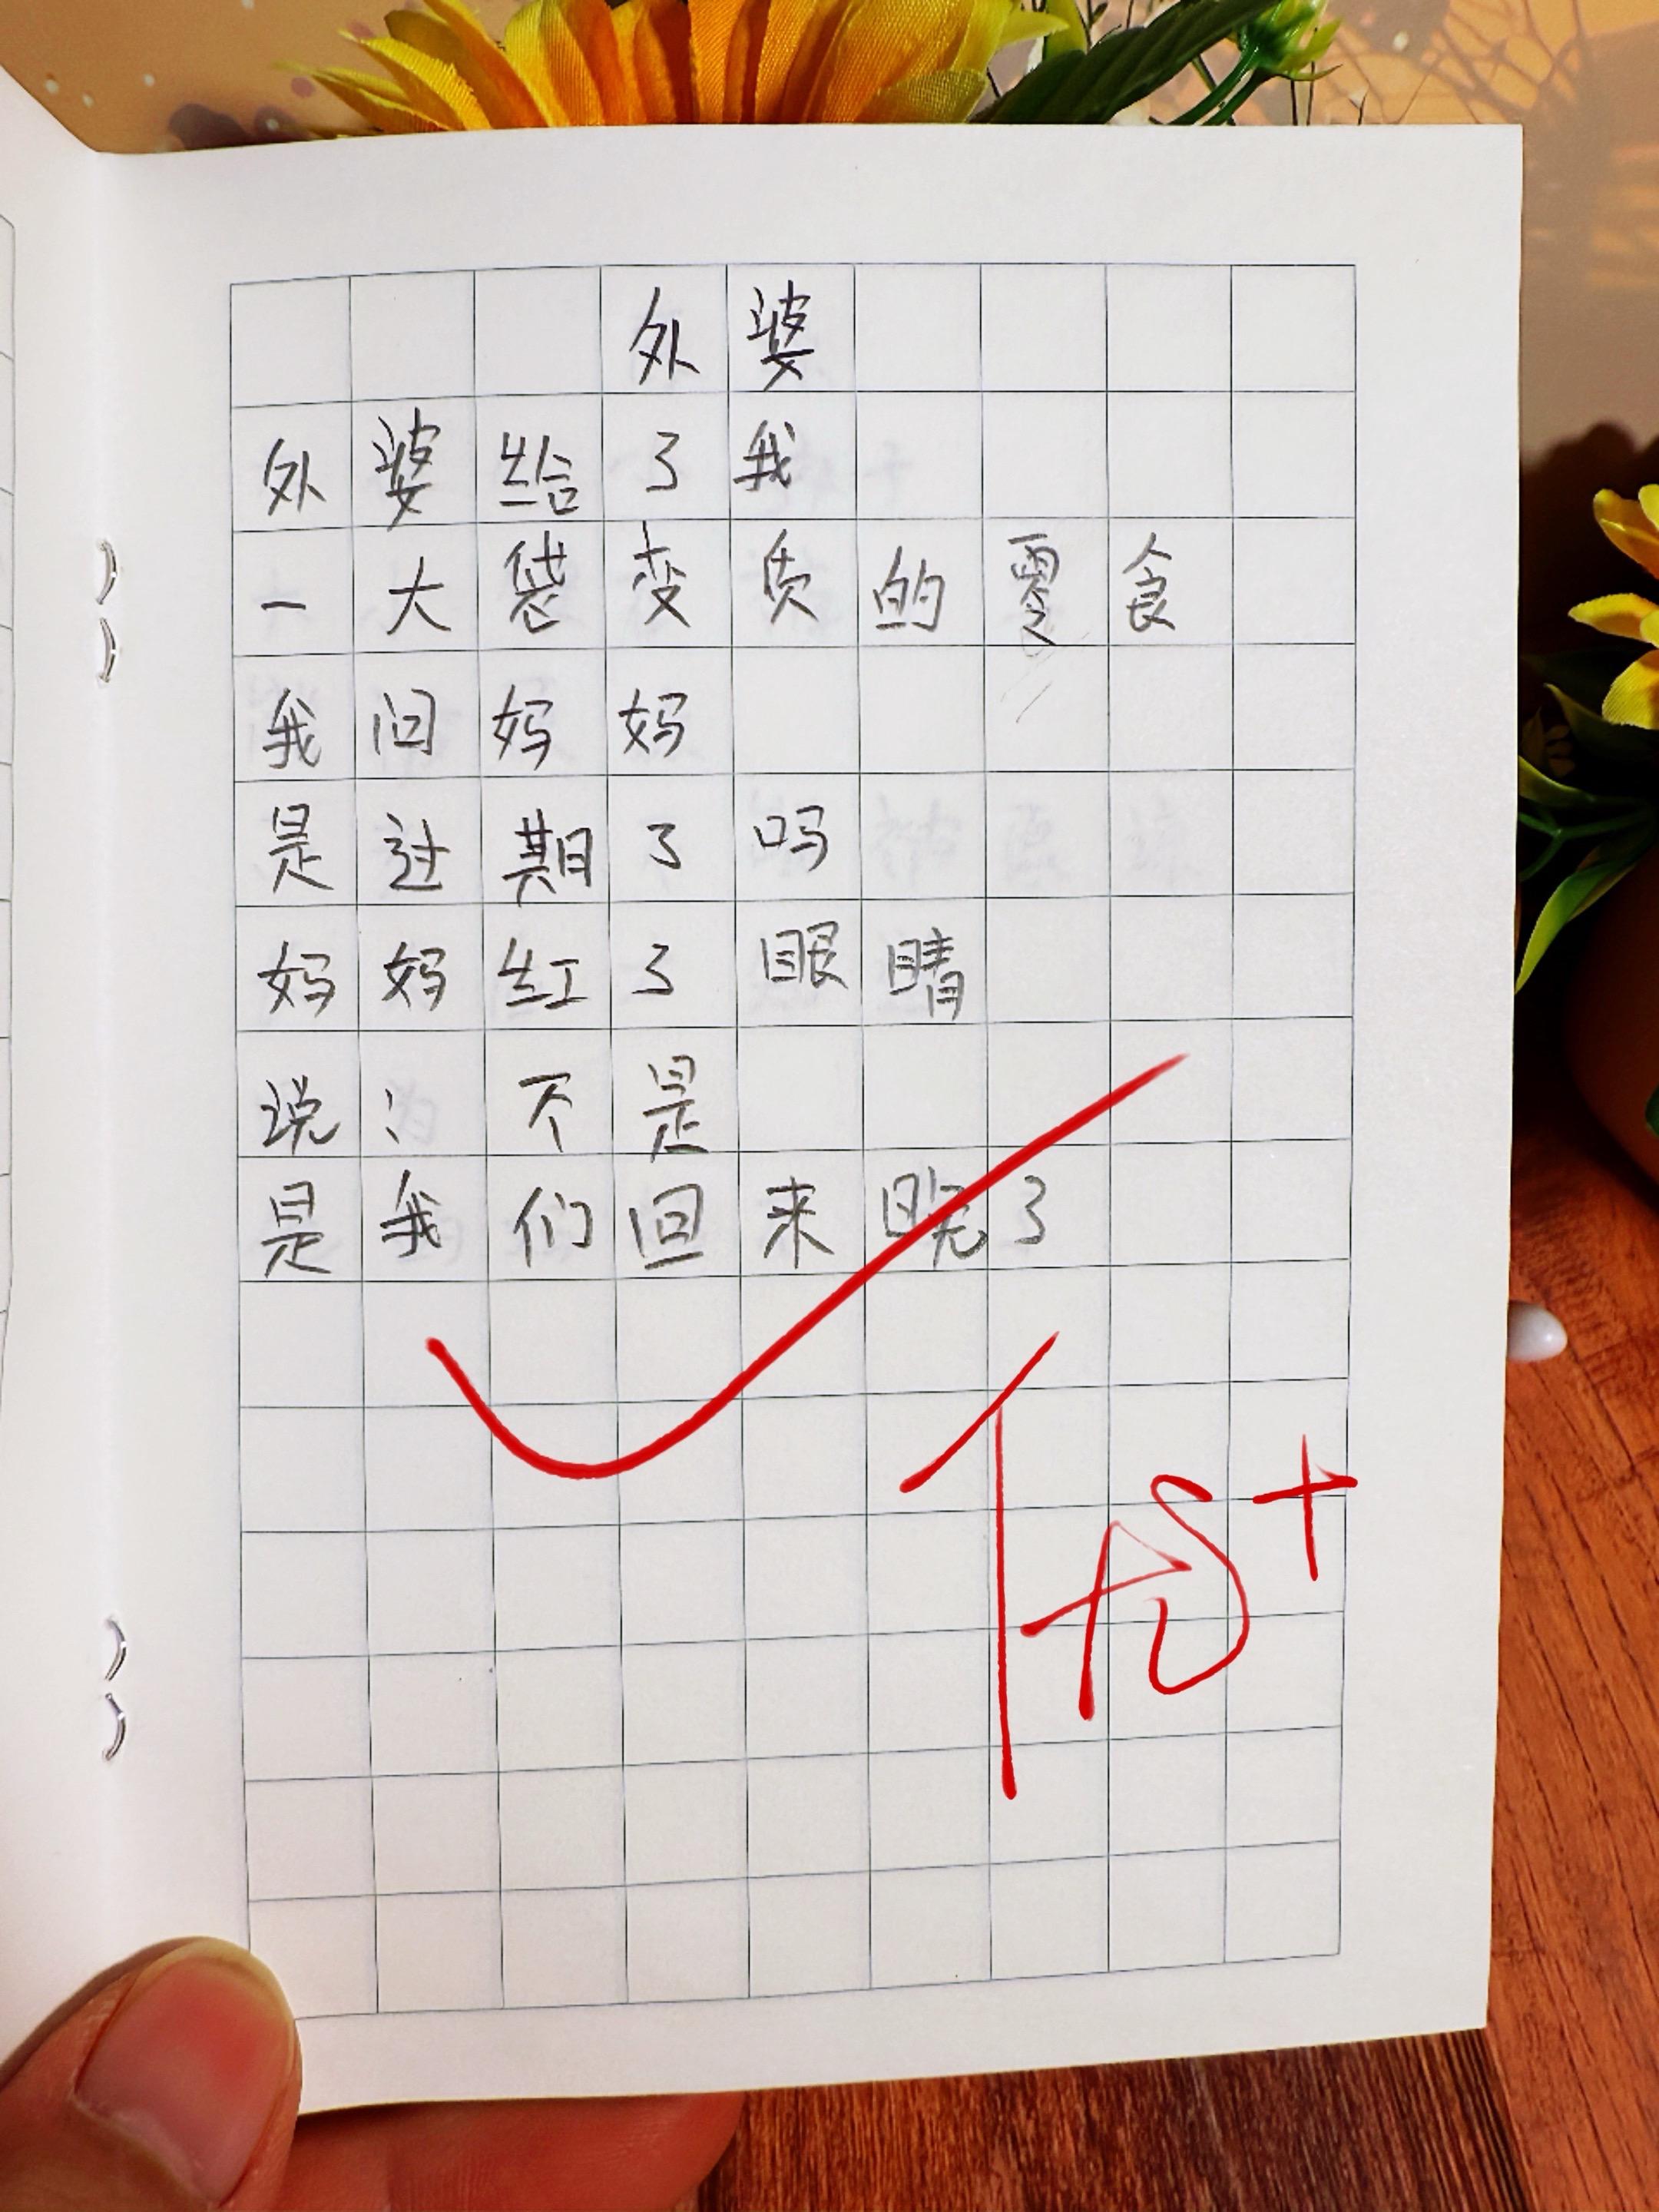 外婆
外婆给了我
一大袋变质的零食
我问妈妈
是过期了吗
妈妈红了眼睛
说：不是
是我们回来晚了